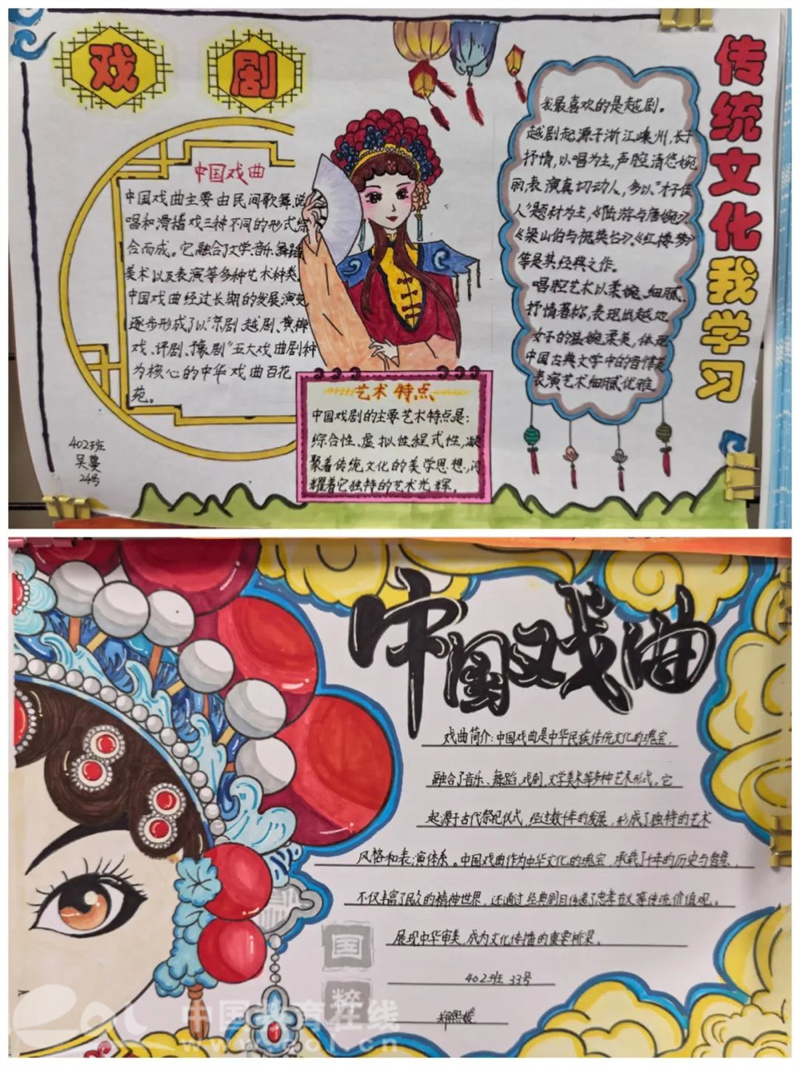 戏剧
传统文化我学习
中国戏曲
中国戏曲主要由民间歌舞、说
唱和滑稽戏三种不同的形式综
合而成。它融合了文学、音乐、舞蹈、
美术以及表演等多种艺术种类。
中国戏曲经过长期的发展演变
逐步形成了以"京剧、越剧、黄梅
戏、评剧、豫剧"五大戏曲剧种
为核心的中华戏曲百花
苑。
402班
吴蔓
24号
艺术特点
中国戏剧的主要艺术特点是:
综合性、虚拟性、程式性,凝
聚着传统文化的美学思想,闪
耀着它独特的艺术光辉。
我最喜欢的是越剧。
越剧起源于浙江嵊州,长于
抒情,以唱为主,声腔清悠婉
丽表演真切动人,多以"才子佳
人"题材为主,《陆游与唐婉》
《梁山伯与祝英台》《红楼梦》
等是其经典之作。
唱腔艺术以柔婉、细腻、
抒情著称,表现出越地
女子的温婉柔美,体现
中国古典文学中的音律美
表演艺术细腻优雅
中国戏曲
戏曲简介:中国戏曲是中华民族传统文化的瑰宝,
融合了音乐、舞蹈、戏剧、文学美术等多种艺术形式。它
起源于古代祭祀仪式,经过数千年的发展,形成了独特的艺术
风格和表演体系。中国戏曲作为中华文化的瑰宝,承载了千年的历史与智慧,
不仅丰富了民众的精神世界,还通过经典剧目传递了忠孝节义等传统价值观。
展现中华审美,成为文化传播的重要桥梁。
402班 33号
国粹
中国教育在线
www.eol.cn